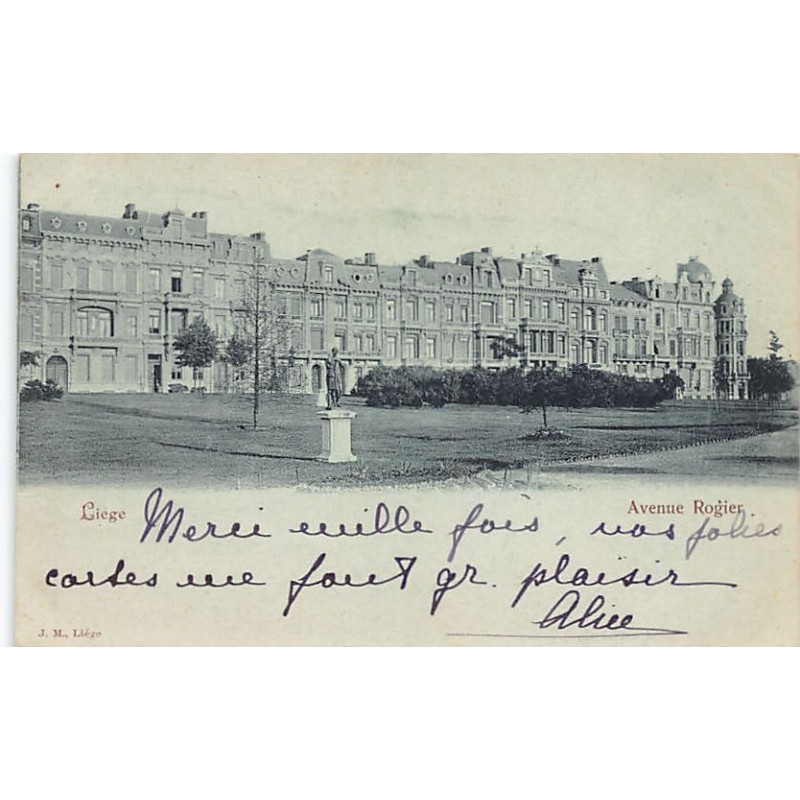 Liege
Avenue Rogier
Merci mille fois, vos jolies
cartes me font gr. plaisir
Alice
J. M., Liége